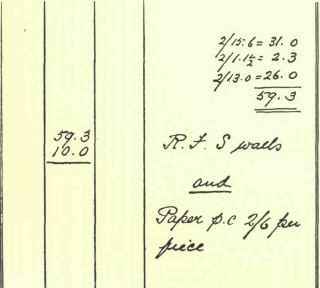 2/15.6 = 31.0
2/1.1½ = 2.3
2/13.0 = 26.0
59.3
59.3
10.0
R.F.S walls
and
Paper p.c 2/6 per
piece